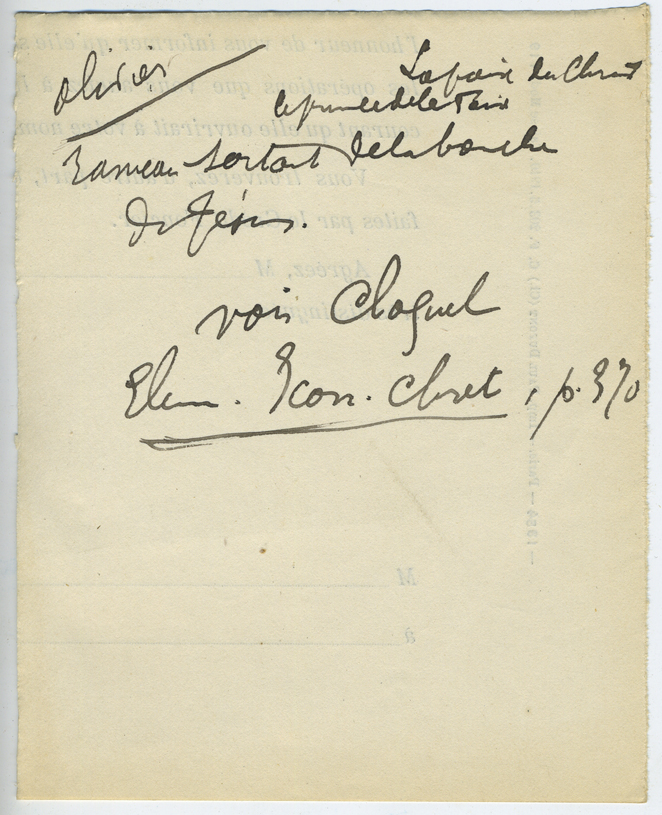 olivier
La paix du Christ
le prince de la Paix
Rameau sortant de la bouche
de Jésus.
voir Cloquet
Elem. Icon. chret, p. 370
l'honneur de vous informer qu'elle
les opérations que vous
courant qu'elle ouvrirait à votre nom
Vous trouverez,
faites par
Agréez, M
M
à